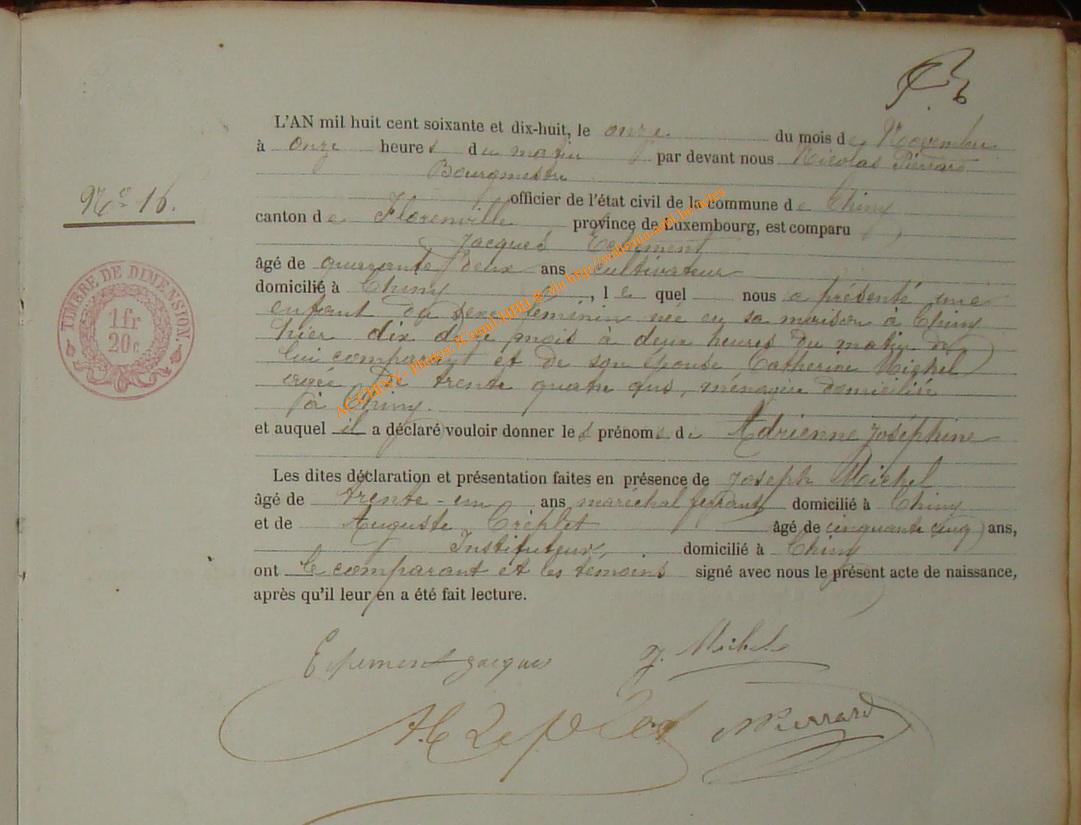 L'AN mil huit cent soixante et dix-huit, le onze du mois de Novembre
à onze heures du matin par devant nous Nicolas Pierrard
Bourgmestre
officier de l'état civil de la commune de Chiny
N° 16.
canton de Florenville province de Luxembourg, est comparu
Jacques
âgé de quarante deux ans cultivateur
domicilié à Chiny, lequel nous a présenté une
enfant du sexe féminin née en sa maison à Chiny
hier dix de ce mois à deux heures du matin de
lui comparant et de son épouse Catherine Michel
agée de trente quatre ans, ménagère domiciliée
à Chiny.
et auquel il a déclaré vouloir donner les prénoms de Adrienne Joséphine
Les dites déclaration et présentation faites en présence de Joseph Michel
âgé de trente-un ans maréchal ferrant domicilié à Chiny
et de Auguste Créplet âgé de cinquante cinq ans,
Instituteur, domicilié à Chiny
ont le comparant et les témoins signé avec nous le présent acte de naissance,
après qu'il leur en a été fait lecture.
Jacques J. Michel
NPierrard
TIMBRE DE DIMENSION.
1 fr
20 c